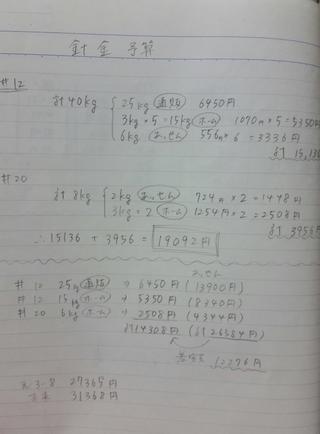 針金 予算
#12
計40kg 25kg 通販 6450円
3kg×5=15kg ホーム 1070円×5=5350円
6kg あっせん 556円×6=3336円
計 15,136
#20
計 8kg 2kg あっせん 724円×2=1448円
3kg×2 ホーム 1254円×2=2508円
計 3956円
∴15136 + 3956 = 19092円
あっせん
#10 25kg 通販 → 6450円 (13900円)
#12 15kg ホーム → 5350円 (8340円)
#20 6kg ホーム → 2508円 (4344円)
計14308円 (計26584円)
12276円
3-8 27365円
31368円